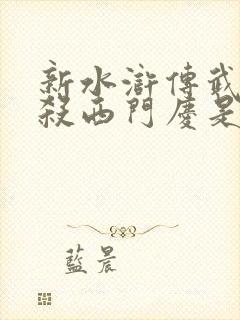 新水滸傳武
殺西門慶是
藍晨